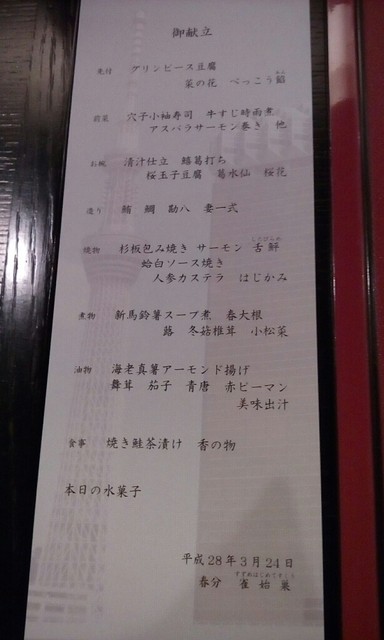 御献立
先付 グリンピース豆腐
菜の花 べっこう餡
前菜 穴子小袖寿司 牛すじ時雨煮
アスパラサーモン巻き 他
お椀 清汁仕立 鱚葛打ち
桜玉子豆腐 葛水仙 桜花
造り 鮪 鯛 勘八 妻一式
焼物 杉板包み焼き サーモン 舌鮃
蛤白ソース焼き
人参カステラ はじかみ
煮物 新馬鈴薯スープ煮 春大根
蕗 冬菇椎茸 小松菜
油物 海老真薯アーモンド揚げ
舞茸 茄子 青唐 赤ピーマン
美味出汁
食事 焼き鮭茶漬け 香の物
本日の水菓子
平成28年3月24日
春分 雀始巣